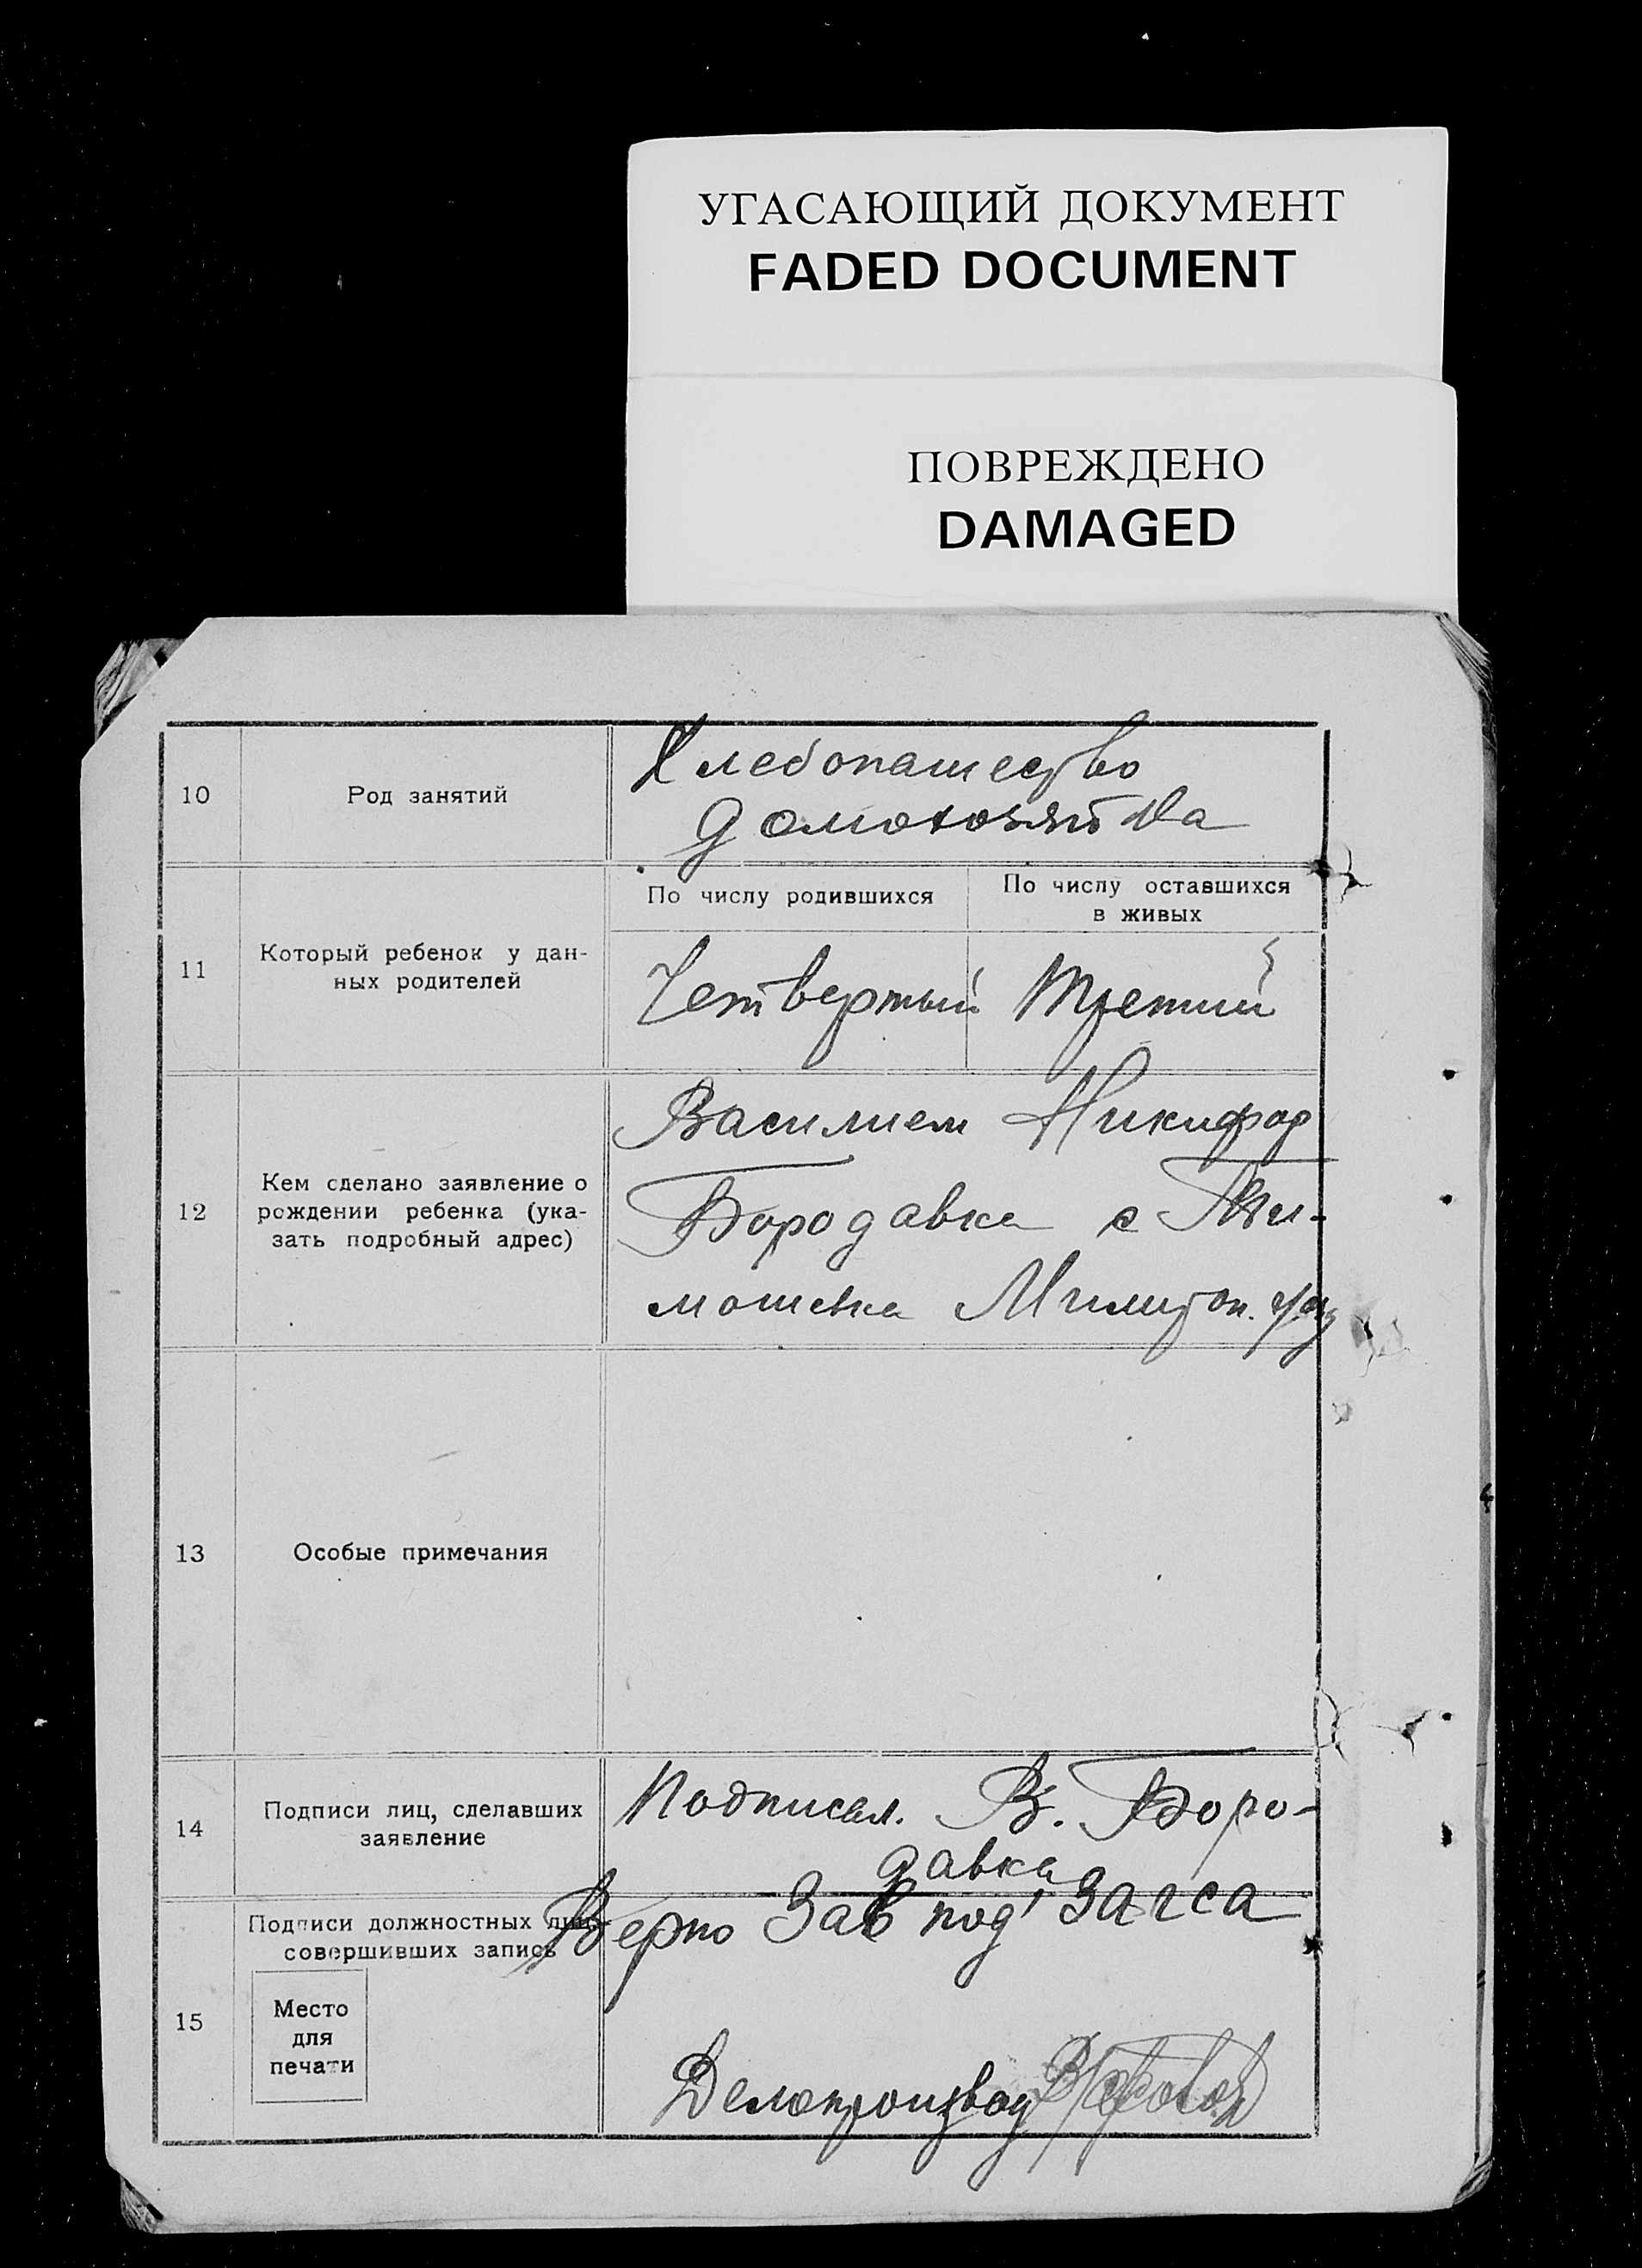 УГАСАЮЩИЙ ДОКУМЕНТ
FADED DOCUMENT
ПОВРЕЖДЕНО
DAMAGED
10
Род занятий
Хлебопашество
домохозяйка
11
Который ребенок у дан-
ных родителей
По числу родившихся
По числу оставшихся
в живых
Четвертый
Третий
12
Кем сделано заявление о
рождении ребенка (ука-
зать подробный адрес)
Василием Никифор
Бородавка с
мошевка
13
Особые примечания
14
Подписи лиц, сделавших
заявление
Подписал. В. Боро-
давка
Подписи должностных лиц,
совершивших запись
Верно Зав под' Загса
15
Место
для
печати
Делопроизвод